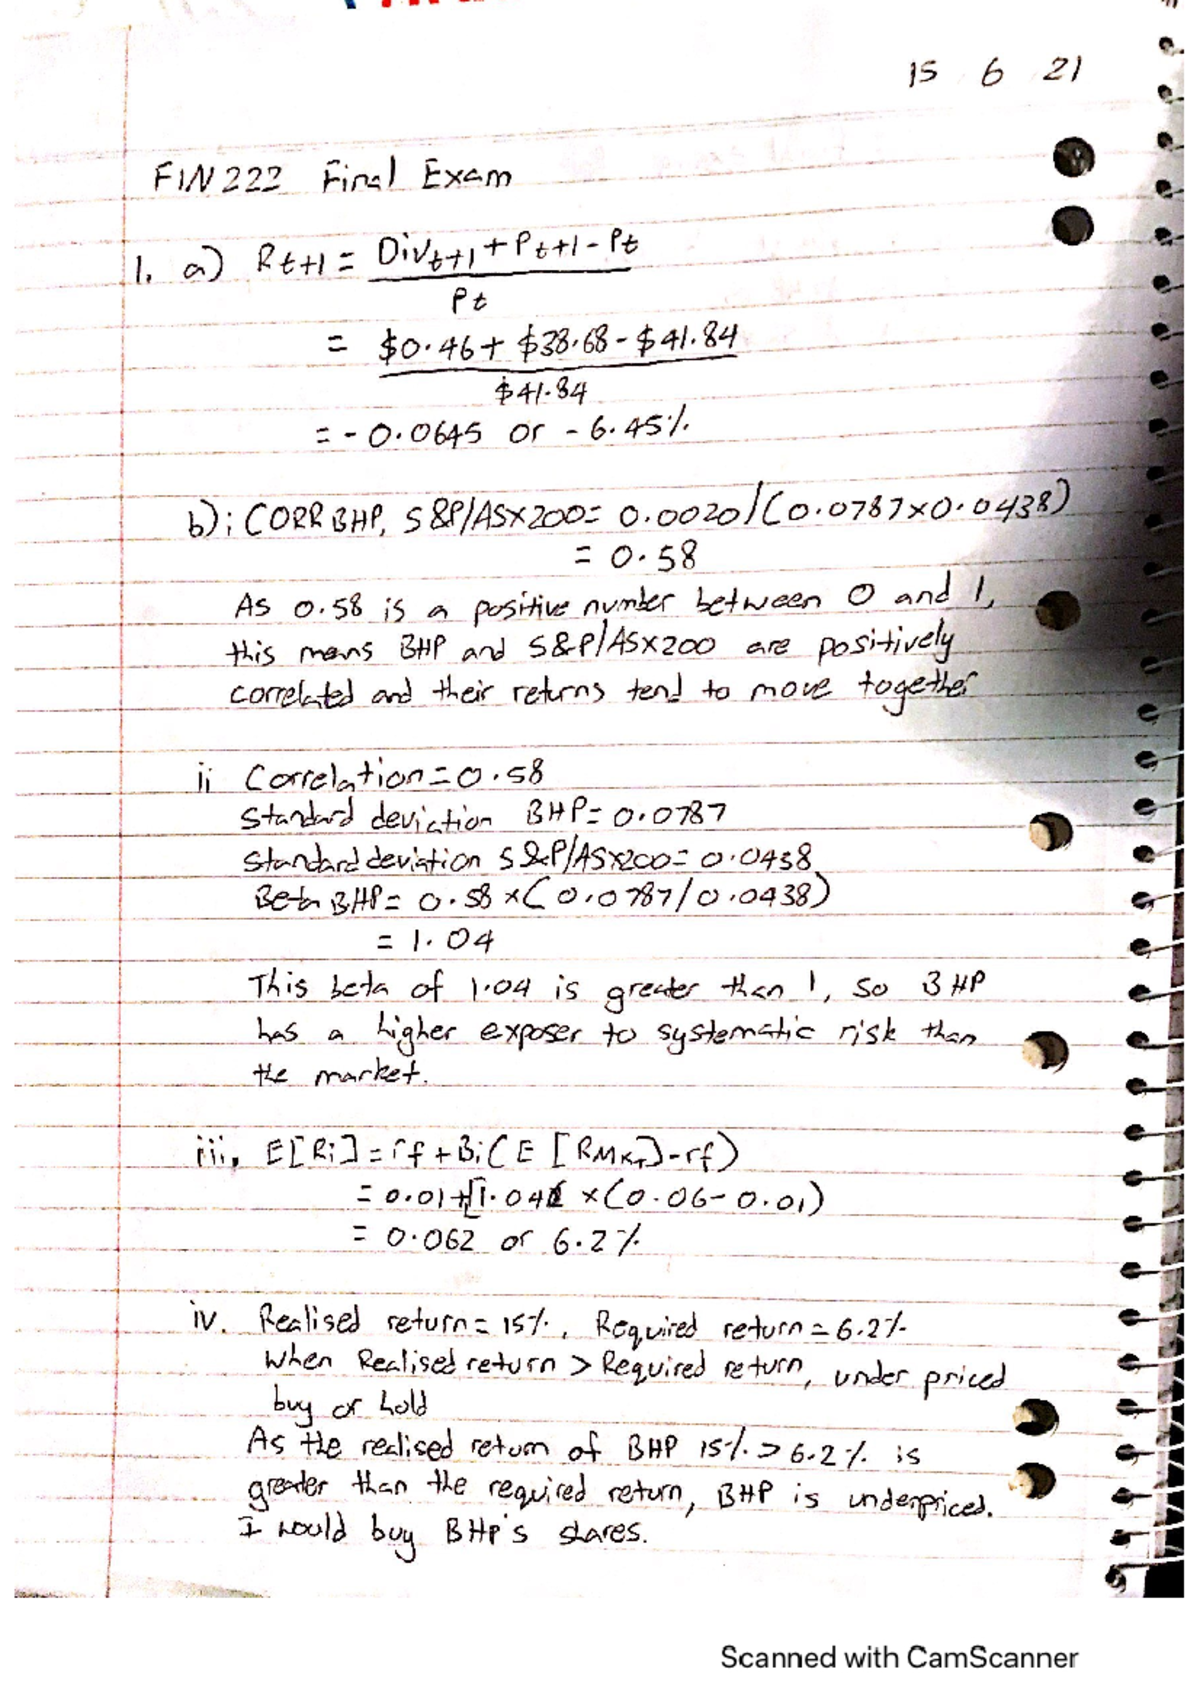 15 6 21
FIN222 Final Exam
1. a) Rt+1 = Divt+1 + Pt+1 - Pt
Pt
= $0.46 + $38.68 - $41.84
$41.84
= - 0.0645 or - 6.45%
b) i CORR BHP, S&P/ASX200 = 0.0020/(0.0787×0.0438)
= 0.58
As 0.58 is a positive number between 0 and 1,
this means BHP and S&P/ASX200 are positively
correlated and their returns tend to move together
ii Correlation = 0.58
Standard deviation BHP = 0.0787
Standard deviation S&P/ASX200 = 0.0438
Beta BHP = 0.58 × (0.0787/0.0438)
= 1.04
This beta of 1.04 is greater than 1, so BHP
has a higher exposer to systematic risk than
the market.
iii. E[Ri] = rf + Bi(E[RMKT] - rf)
= 0.01 + [1.04 × (0.06 - 0.01)
= 0.062 or 6.2%
iv. Realised return = 15%, Required return = 6.2%
When Realised return > Required return, under priced
buy or hold
As the realised return of BHP 15% > 6.2% is
greater than the required return, BHP is underpriced.
I would buy BHP's shares.
Scanned with CamScanner